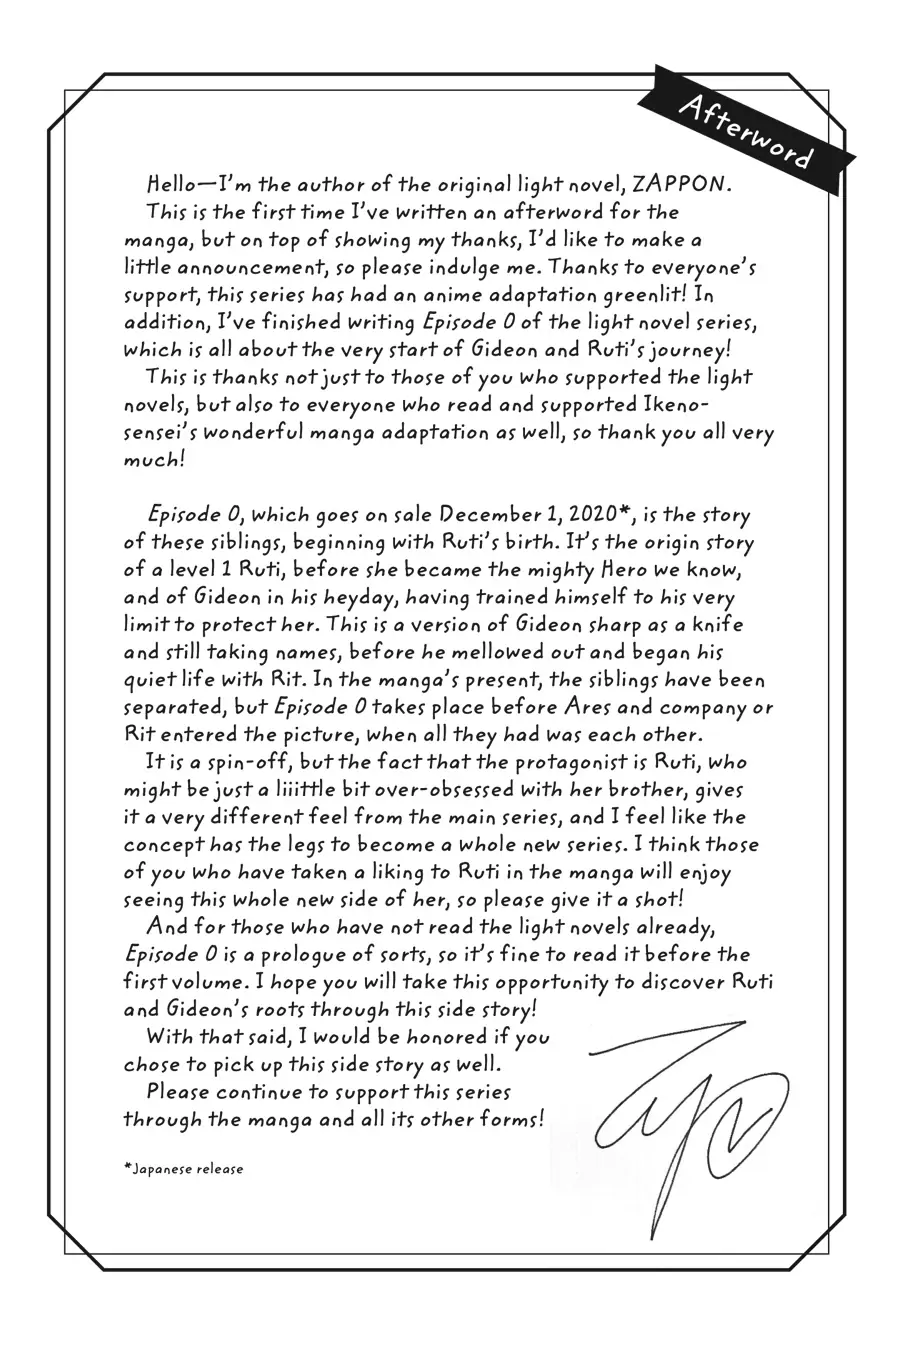 Afterword
Hello—I'm the author of the original light novel, ZAPPON.
This is the first time I've written an afterword for the
manga, but on top of showing my thanks, I'd like to make a
little announcement, so please indulge me. Thanks to everyone's
support, this series has had an anime adaptation greenlit! In
addition, I've finished writing Episode 0 of the light novel series,
which is all about the very start of Gideon and Ruti's journey!
This is thanks not just to those of you who supported the light
novels, but also to everyone who read and supported Ikeno-
sensei's wonderful manga adaptation as well, so thank you all very
much!
Episode 0, which goes on sale December 1, 2020*, is the story
of these siblings, beginning with Ruti's birth. It's the origin story
of a level 1 Ruti, before she became the mighty Hero we know,
and of Gideon in his heyday, having trained himself to his very
limit to protect her. This is a version of Gideon sharp as a knife
and still taking names, before he mellowed out and began his
quiet life with Rit. In the manga's present, the siblings have been
separated, but Episode 0 takes place before Ares and company or
Rit entered the picture, when all they had was each other.
It is a spin-off, but the fact that the protagonist is Ruti, who
might be just a liiittle bit over-obsessed with her brother, gives
it a very different feel from the main series, and I feel like the
concept has the legs to become a whole new series. I think those
of you who have taken a liking to Ruti in the manga will enjoy
seeing this whole new side of her, so please give it a shot!
And for those who have not read the light novels already,
Episode 0 is a prologue of sorts, so it's fine to read it before the
first volume. I hope you will take this opportunity to discover Ruti
and Gideon's roots through this side story!
With that said, I would be honored if you
chose to pick up this side story as well.
Please continue to support this series
through the manga and all its other forms!
*Japanese release